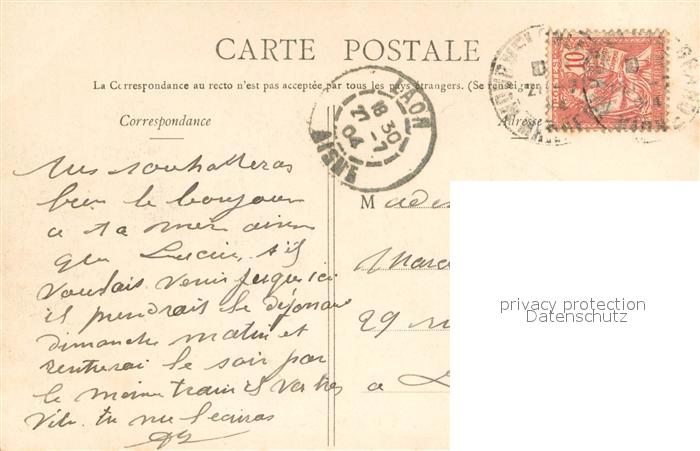 CARTE POSTALE
La Correspondance au recto n'est pas acceptée par tous les pays étrangers. (Se renseigner
Correspondance
Adresse
LAON
18 30
7
04
AISNE
10
tu souhaiteras
bien le bonjour
a ta mère ainsi
que Lucien, s'il
voulait venir jusqu'ici
il prendrait le déjeuner
dimanche matin et
rentrerai le soir par
le même train il va très
vite. tu me l'ecriras
Made
Marc
29 ru
a L
privacy protection
Datenschutz